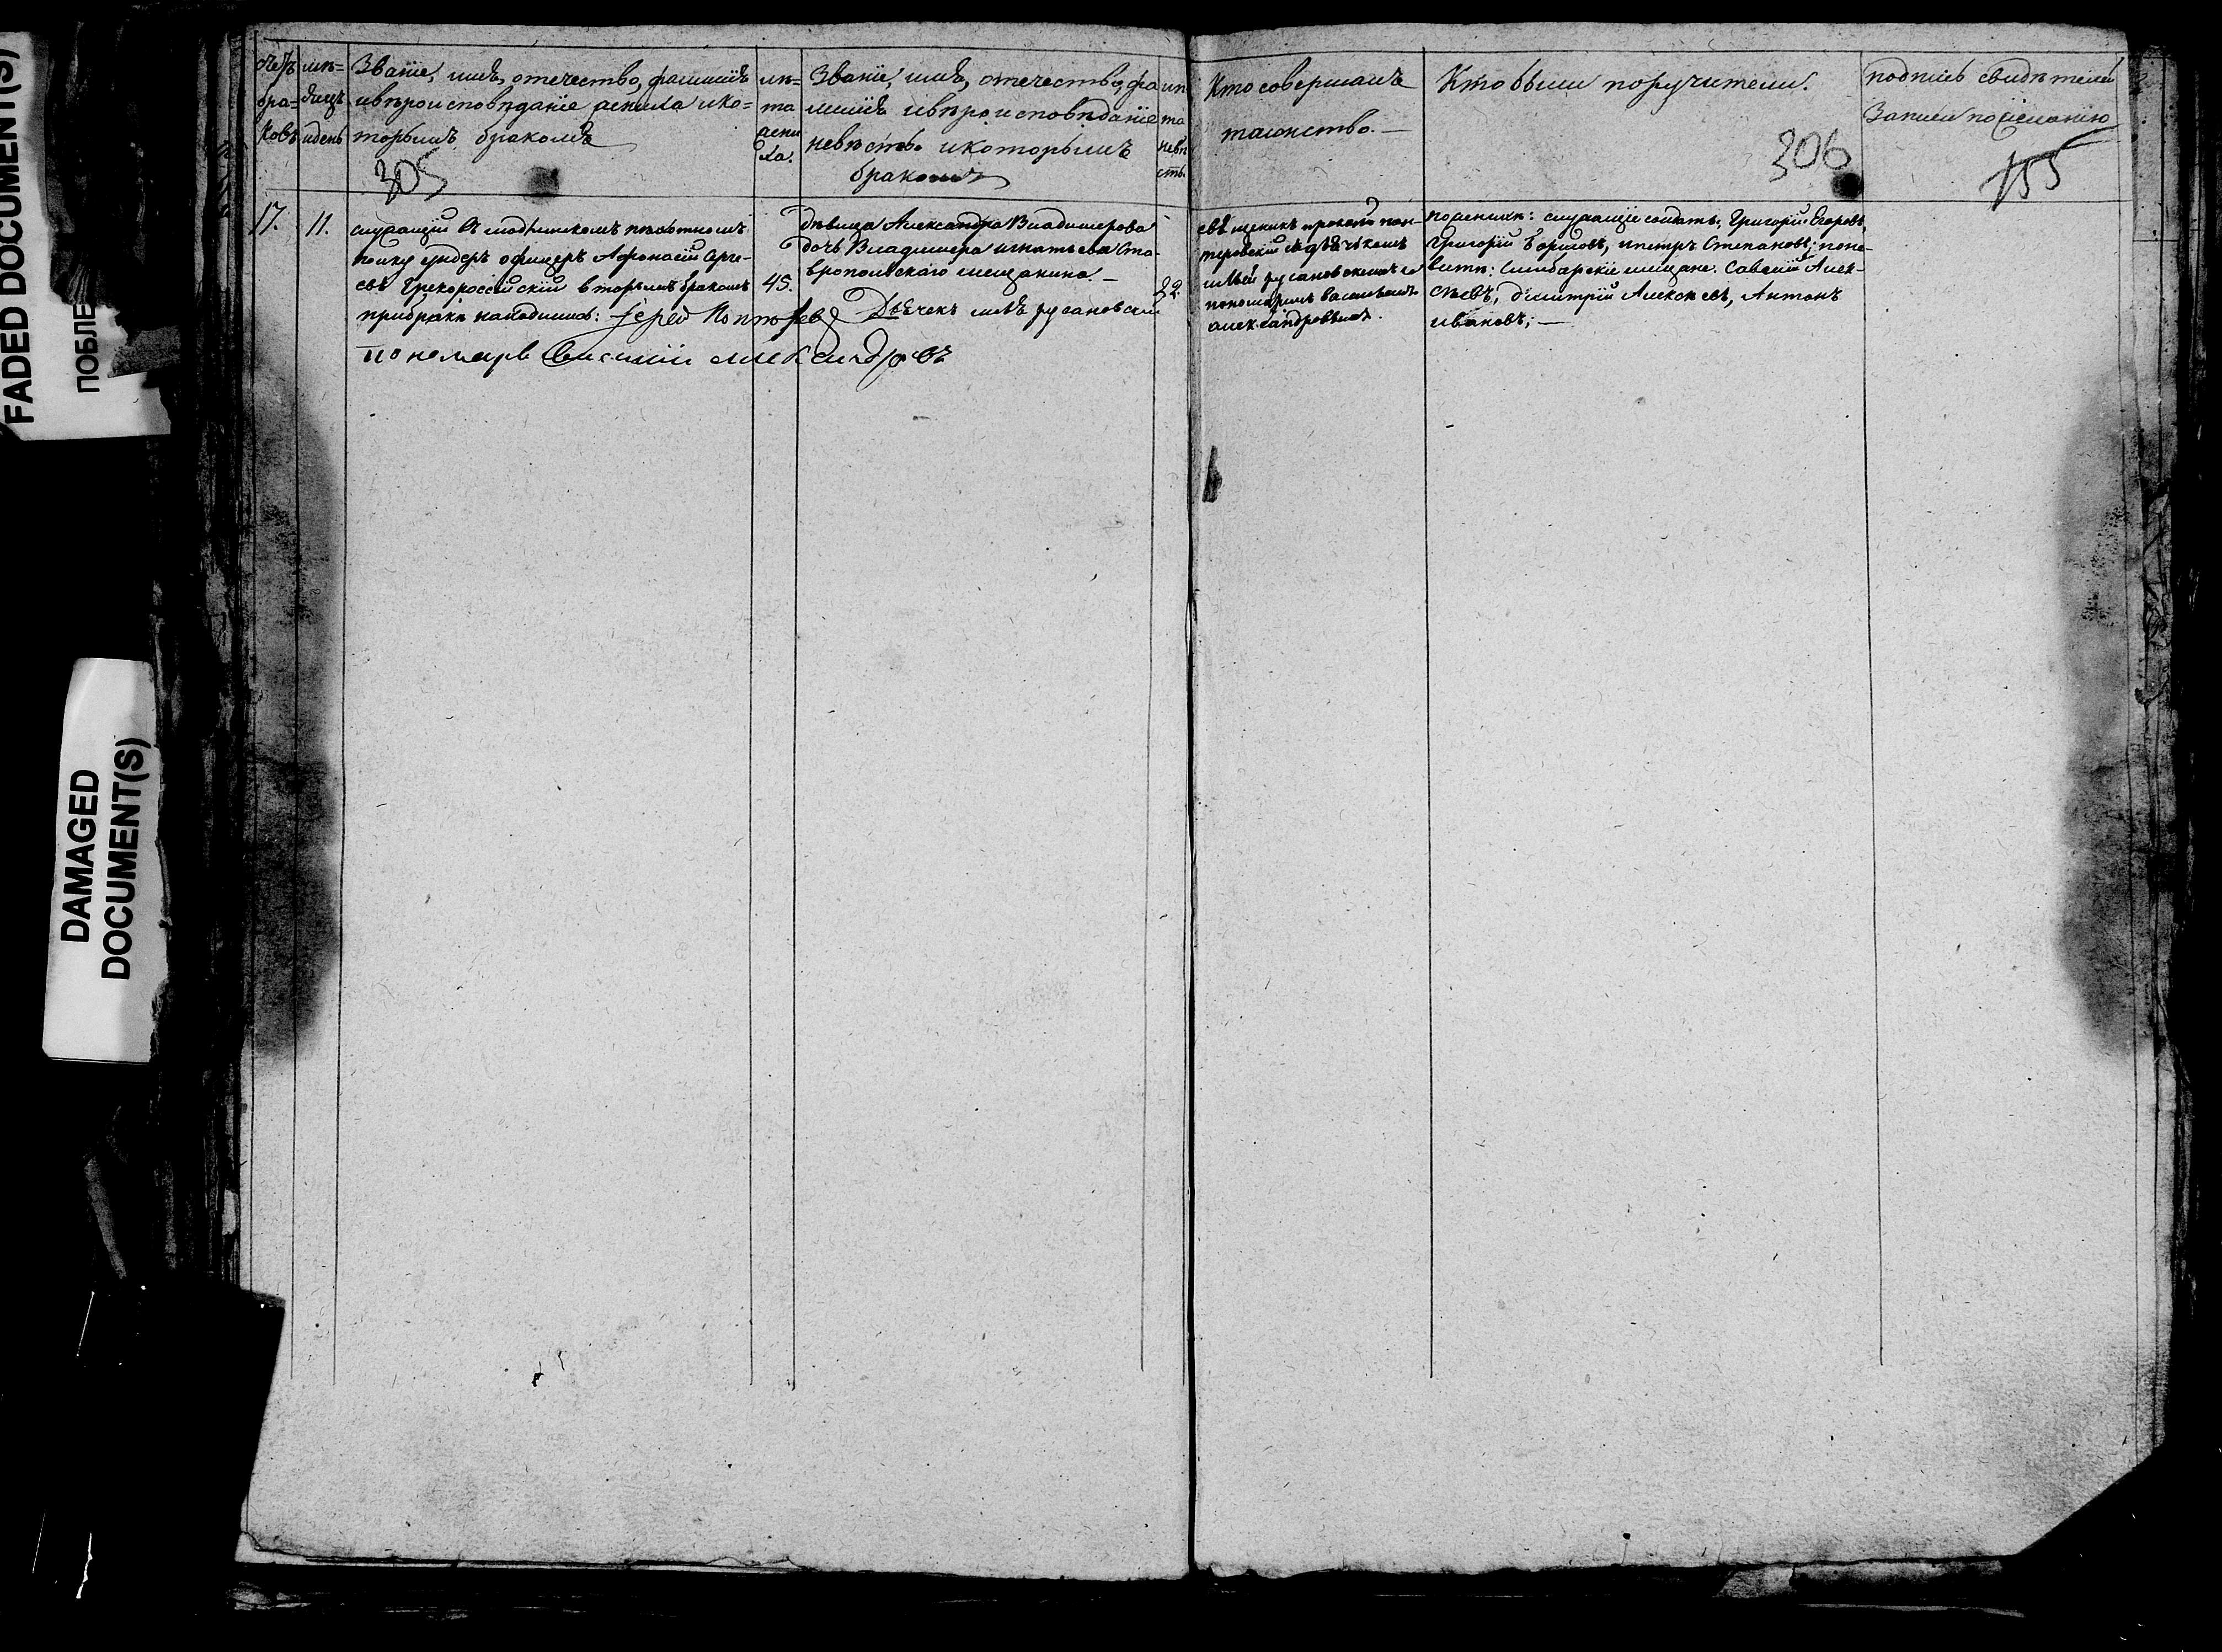 FADED DOCUMENT(S)
ПОБЛЕ
DAMAGED
DOCUMENT(S)
счетъ
бра-
ковъ
мѣ-
сяцъ
и день
Званіе, имя, отечество, фамилія
и вѣроисповѣданіе жениха и ко-
торымъ бракомъ
305
лѣ-
та
жени
ха.
Званіе, имя, отечество, фа
милія и вѣроисповѣданіе
невѣсты и которымъ
бракомъ
лѣ
та
невѣ
сты.
Кто совершалъ
таинство. —
Кто были поручители.
306
подпись свидѣтелей
Записи по желанію
155
17.
11.
служащій въ пѣхотномъ
полку ундеръ офицеръ Афонасій Серге-
евъ Грекороссійскій вторымъ бракомъ
при бракѣ находились: Іерей
пономарь Василій Александровъ
45.
дѣвица Александра Владимерова
дочь Владимера Игнатьева Ста-
вропольскаго мещанина. —
Дьечекъ Илья Русановскій
22.
священникъ
съ дьячкомъ
Ильей Русановскимъ и
пономаремъ Васильемъ
Александровымъ.
по женихѣ: служащіе солдаты: Григорій Егоровъ,
Григорій Борисовъ, и Петръ Степановъ; по не-
вѣстѣ: Симбирскіе мещане. Савелій Алек-
сѣевъ, Дмитрій Алексѣевъ, Антонъ
Ивановъ; —